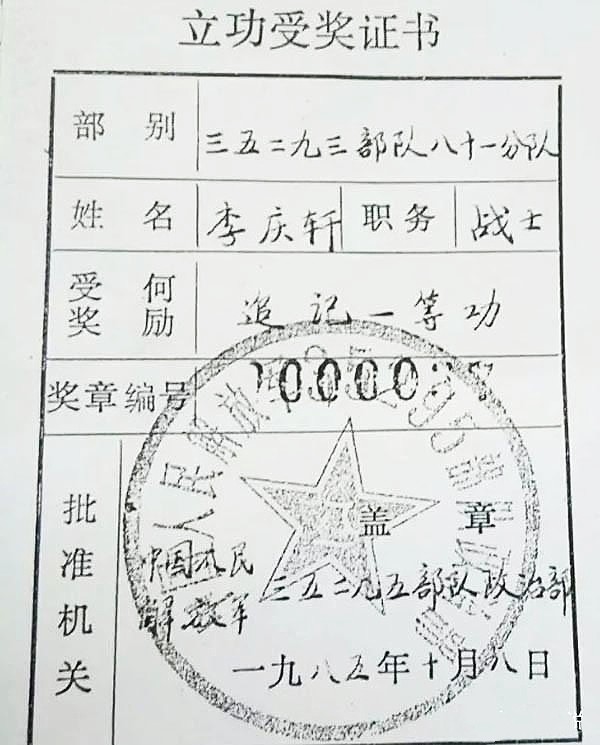 立功受奖证书
部别 三五二九三部队八十一分队
姓名 李庆轩 职务 战士
受何奖励 追记一等功
奖章编号 00000
批准机关 盖章
中国人民解放军 三五二九五部队政治部
一九八五年十月八日
人民解放军35295部